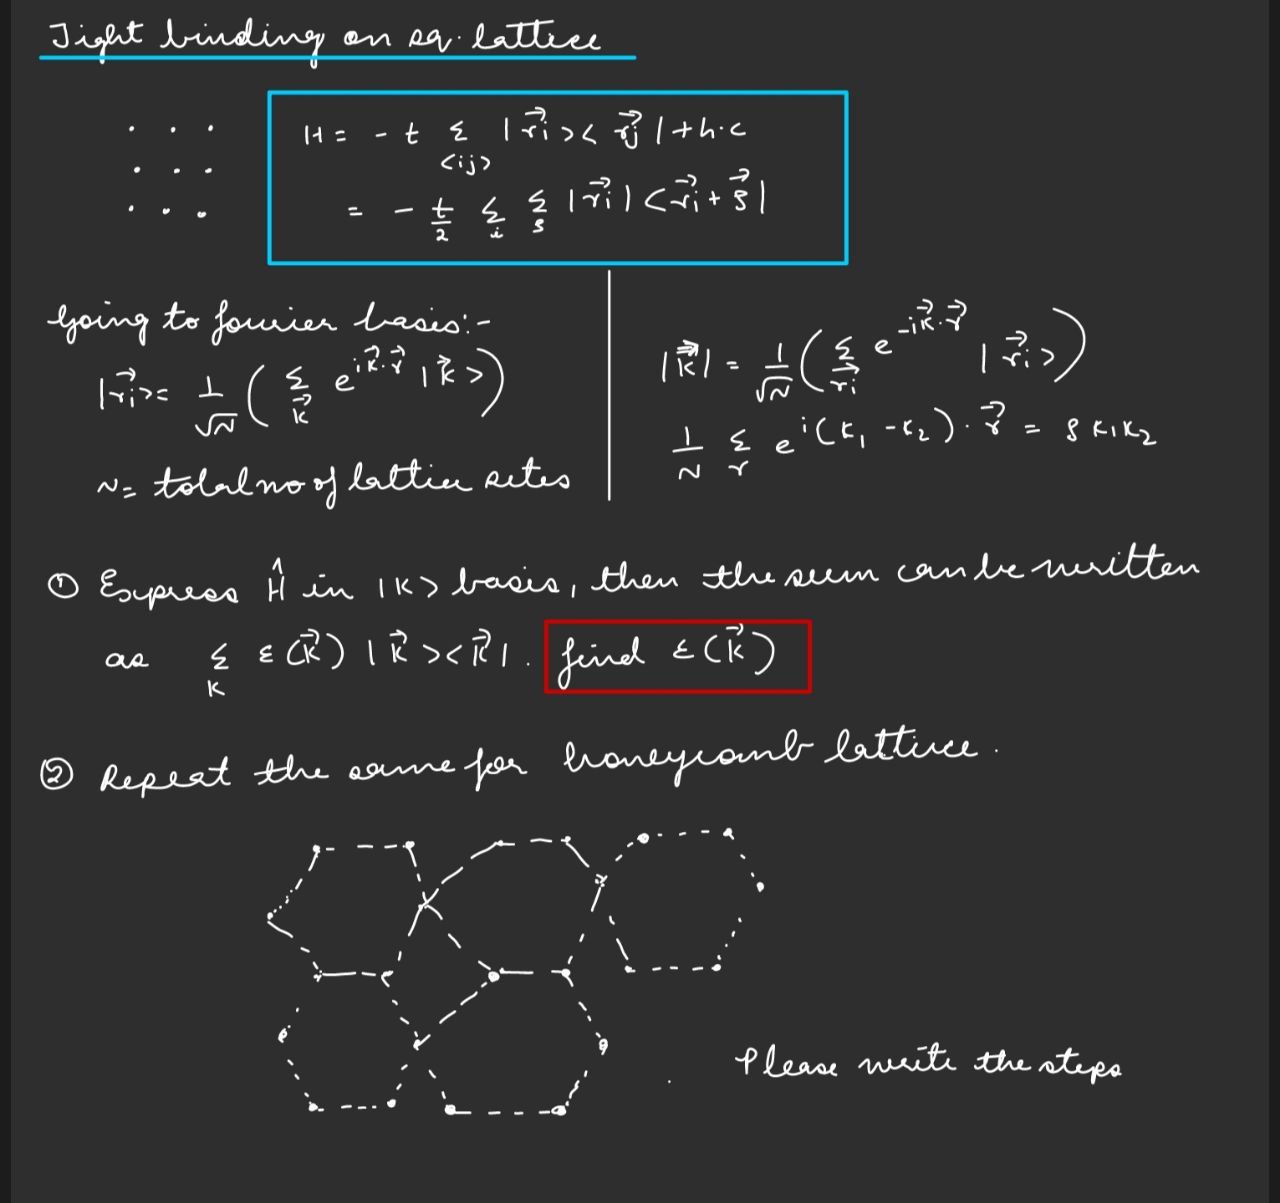 Tight binding on sq. lattice
H = - t Σ |r⃗i><r⃗j| + h.c
<ij>
= - t/2 Σ Σ |r⃗i| <r⃗i + δ⃗|
i δ
Going to fourier basis:-
|r⃗i> = 1/√N ( Σ e^{ik⃗.r⃗} |k⃗> )
k⃗
N = total no of lattice sites
|k⃗| = 1/√N ( Σ e^{-ik⃗.r⃗} |r⃗i> )
ri
1/N Σ e^{i(k₁ - k₂).r⃗} = δ k₁k₂
r
① Express Ĥ in |k> basis, then the sum can be written
as Σ ε(k⃗) |k⃗><k⃗|. find ε(k⃗)
k
② Repeat the same for honeycomb lattice.
Please write the steps